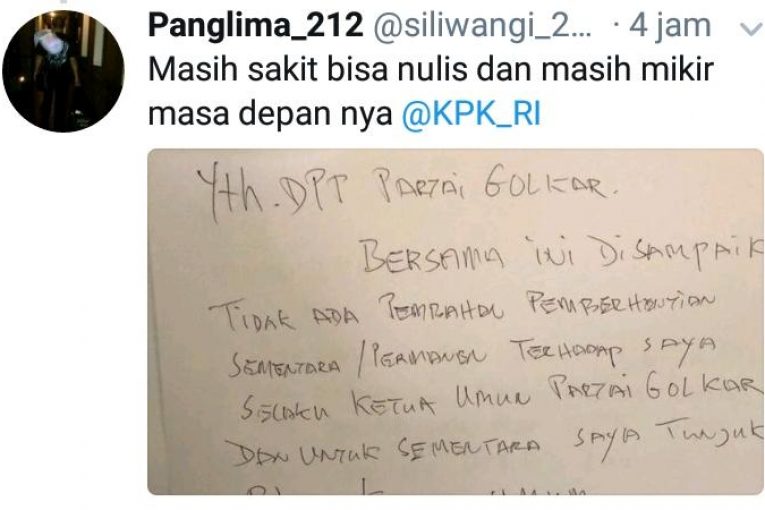 Panglima_212 @siliwangi_2... · 4 jam
Masih sakit bisa nulis dan masih mikir
masa depan nya @KPK_RI
Yth. DPP PARTAI GOLKAR.
BERSAMA INI DISAMPAIK
TIDAK ADA PEMBAHAN PEMBERHENTIAN
SEMENTARA/PERMANEN TERHADAP SAYA
SELAKU KETUA UMUM PARTAI GOLKAR
DAN UNTUK SEMENTARA SAYA TUNJUK
UMUM